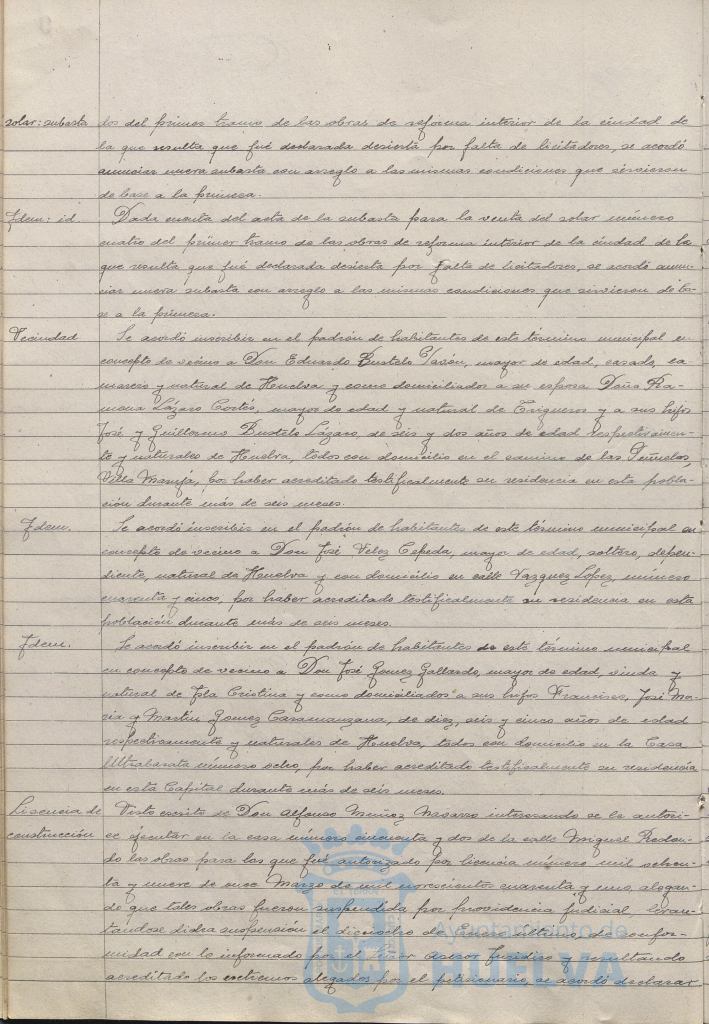 solar: subasta dos del primer tramo de las obras de reforma interior de la ciudad de
la que resulta que fué declarada desierta por falta de licitadores, se acordó
anunciar nueva subasta con arreglo a las mismas condiciones que sirvieron
de base a la primera.
Idem: id. Dada cuenta del acta de la subasta para la venta del solar número
cuatro del primer tramo de las obras de reforma interior de la ciudad de la
que resulta que fué declarada desierta por falta de licitadores, se acordó anun-
ciar nueva subasta con arreglo a las mismas condiciones que sirvieron de ba-
se a la primera.
Vecindad Se acordó inscribir en el padrón de habitantes de este término municipal en
concepto de vecino a Don Eduardo Bustelo Pavón, mayor de edad, casado, ca-
marero y natural de Huelva y como domiciliados a su esposa Doña Ra-
mona Lázaro Cortés, mayor de edad y natural de Trigueros y a sus hijos
José y Guillermo Bustelo Lázaro, de seis y dos años de edad respectivamen-
te y naturales de Huelva, todos con domicilio en el camino de las
Villa por haber acreditado testificalmente su residencia en esta pobla-
ción durante más de seis meses.
Idem. Se acordó inscribir en el padrón de habitantes de este término municipal en
concepto de vecino a Don José Velez Cepeda, mayor de edad, soltero, depen-
diente, natural de Huelva y con domicilio en calle Vazquez Lopez, número
cuarenta y cinco, por haber acreditado testificalmente su residencia en esta
población durante más de seis meses.
Idem. Se acordó inscribir en el padrón de habitantes de este término municipal
en concepto de vecino a Don José Gomez Gallardo, mayor de edad, viudo y
natural de Isla Cristina y como domiciliados a sus hijos Francisco, José Ma-
ria y Martin Gomez Casamanzana, de diez, seis y cinco años de edad
respectivamente y naturales de Huelva, todos con domicilio en la Casa
Ultrabarata número ocho, por haber acreditado testificalmente su residencia
en esta Capital durante más de seis meses.
Licencia de Visto escrito de Don Alfonso Muñoz Navarro interesando se le autori-
construcción ce ejecutar en la casa número cincuenta y dos de la calle Miguel Redon-
do las obras para las que fué autorizado por licencia número mil
ta y nueve de once Marzo de mil novecientos cuarenta y uno, alegan-
do que tales obras fueron suspendida por providencia judicial, levan-
tándose dicha suspensión el dieciocho de Enero último, de confor-
midad con lo informado por el Señor Asesor Jurídico y resultando
acreditado los extremos alegados por el peticionario, se acordó declarar
Ayuntamiento de
HUELVA